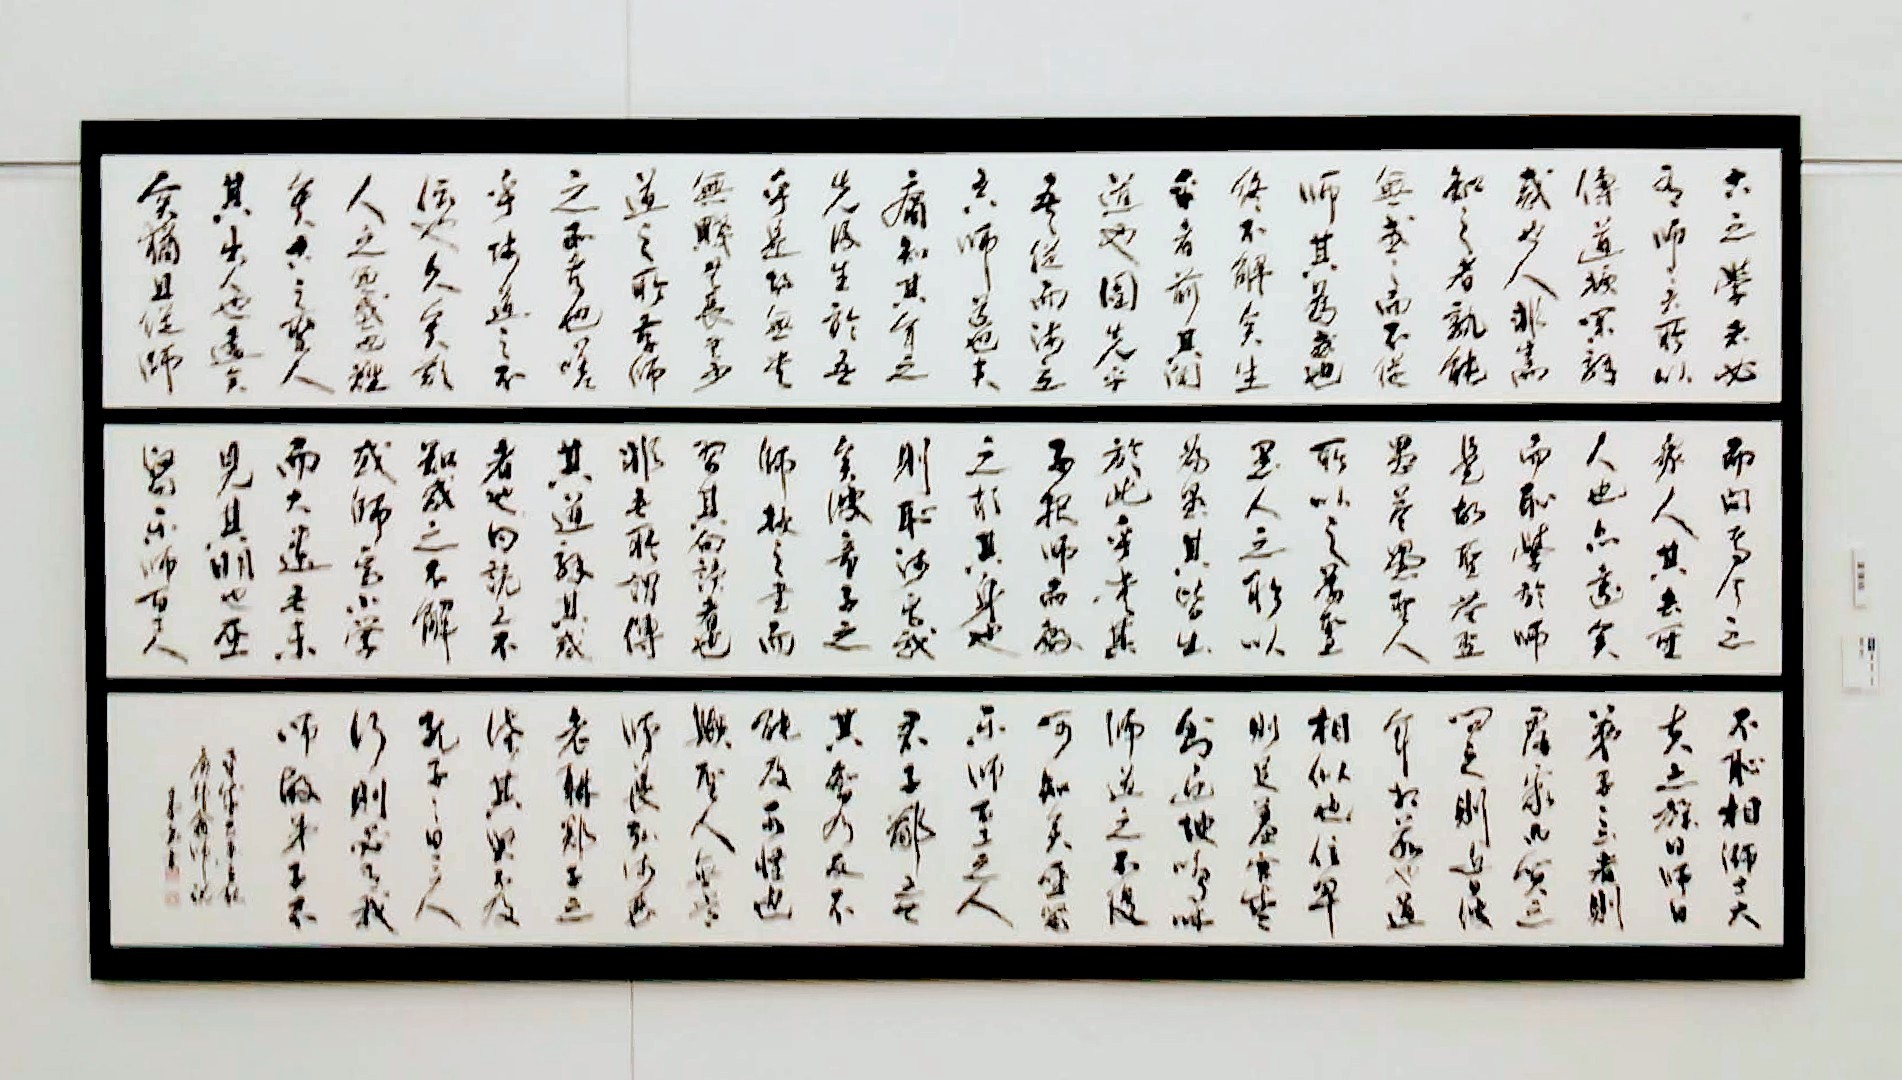 古之學者必
有師師者所以
傳道授業解
惑也人非生而
知之者孰能
無惑惑而不從
師其為惑也
終不解矣生
乎吾前其聞
道也固先乎
吾從而師之
吾師道也夫
庸知其年之
先後生於吾
乎是故無貴
無賤無長無少
道之所存師
之所存也嗟
乎師道之不
傳也久矣欲
人之無惑也難
矣古之聖人
其出人也遠矣
矣猶且從師
而問焉今之
眾人其去聖
人也亦遠矣
而恥學於師
是故聖益聖
愚益愚聖人
所以之為聖
愚人之所以
為愚其皆出
於此乎愛其
子擇師而教
之於其身也
則恥師焉惑
矣彼童子之
師授之書而
習其句讀者也
非吾所謂傳
其道解其惑
者也句讀之不
知惑之不解
或師焉小學
而大遺吾未
見其明也巫
醫樂師百工人
不恥相師士大
夫之族曰師曰
弟子云者則
群聚而笑之
問之則曰彼
年相若也道
相似也位卑
則足羞官盛
則近諛嗚呼
師道之不復
可知矣巫醫
樂師百工之人
君子鄙之今
其智乃反不
能及可怪也
歟聖人無常
師萇弘師襄
老聃郯子之
徒其賢不及
孔子孔子曰三人
行則必有我
師故弟子不
唐韓愈師說